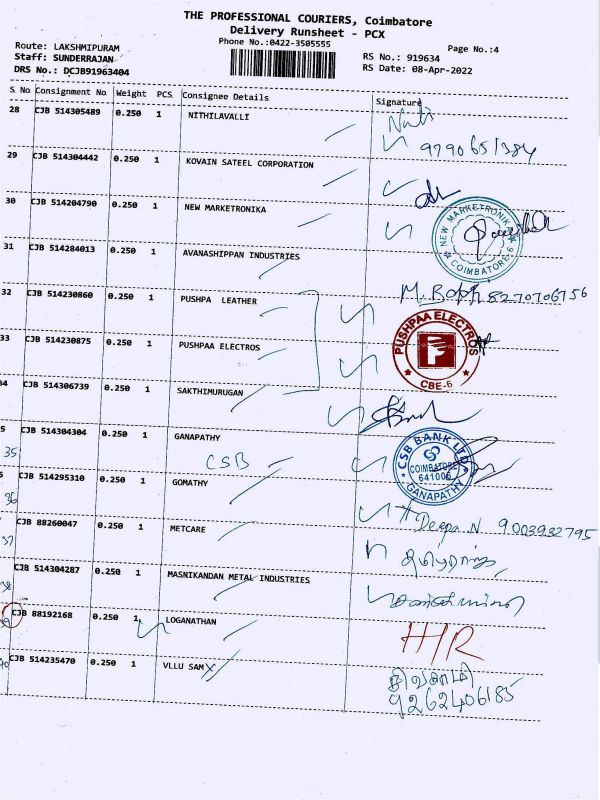 THE PROFESSIONAL COURIERS, Coimbatore
Delivery Runsheet - PCX
Phone No.:0422-3505555
Page No.:4
Route: LAKSHMIPURAM
Staff: SUNDERRAJAN
DRS No.: DCJB91963404
RS No.: 919634
RS Date: 08-Apr-2022
S. No Consignment No. Weight PCS Consignee Details Signature
28 CJB 514305489 0.250 1 NITHILAVALLI
9790651384
29 CJB 514304442 0.250 1 KOVAIN SATEEL CORPORATION
30 CJB 514204790 0.250 1 NEW MARKETRONIKA
NEW MARKETRONIK
COIMBATORE-6
31 CJB 514284013 0.250 1 AVANASHIPPAN INDUSTRIES
8270706756
32 CJB 514230860 0.250 1 PUSHPA LEATHER
33 CJB 514230875 0.250 1 PUSHPAA ELECTROS
PUSHPAA ELECTROS
CBE-6
34 CJB 514306739 0.250 1 SAKTHIMURUGAN
35 CJB 514304304 0.250 1 GANAPATHY
CSB
CSB BANK LTD
COIMBATORE
641006
GANAPATHY
36 CJB 514295310 0.250 1 GOMATHY
Deepa N 9003932795
37 CJB 88260047 0.250 1 METCARE
38 CJB 514304287 0.250 1 MASNIKANDAN METAL INDUSTRIES
39 CJB 88192168 0.250 1 LOGANATHAN
H/R
40 CJB 514235470 0.250 1 VLLU SAMY
9262406185